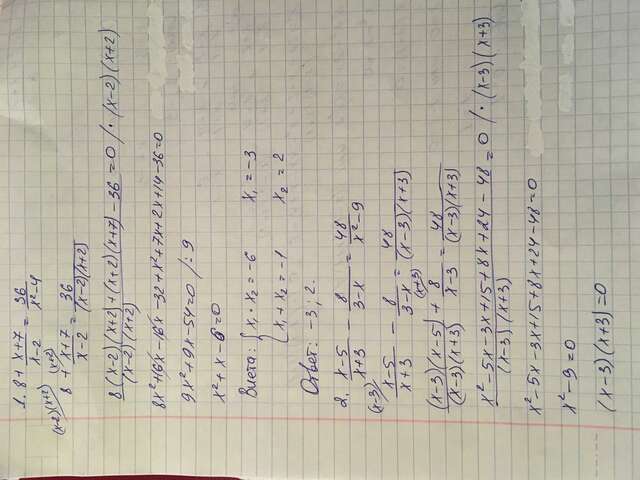 1. 8 + (x+7)/(x-2) = 36/(x²-4)
(x-2)(x+2) (x+2)
8 + (x+7)/(x-2) = 36/((x-2)(x+2))
(8(x-2)(x+2)+(x+2)(x+7)-36)/((x-2)(x+2)) = 0 / · (x-2)(x+2)
8x²+16x-16x-32+x²+7x+2x+14-36=0
9x²+9x-54=0 / :9
x²+x-6=0
Виета: { x₁·x₂=-6 x₁=-3
x₁+x₂=-1 x₂=2
Ответ: -3; 2.
2. (x-5)/(x+3) - 8/(3-x) = 48/(x²-9)
(x-3)
(x-5)/(x+3) - 8/(3-x) = 48/((x-3)(x+3))
(x+3)
((x-3)(x-5))/((x-3)(x+3)) + 8/(x-3) = 48/((x-3)(x+3))
(x²-5x-3x+15+8x+24-48)/((x-3)(x+3)) = 0 / · (x-3)(x+3)
x²-5x-3x+15+8x+24-48=0
x²-9=0
(x-3)(x+3)=0